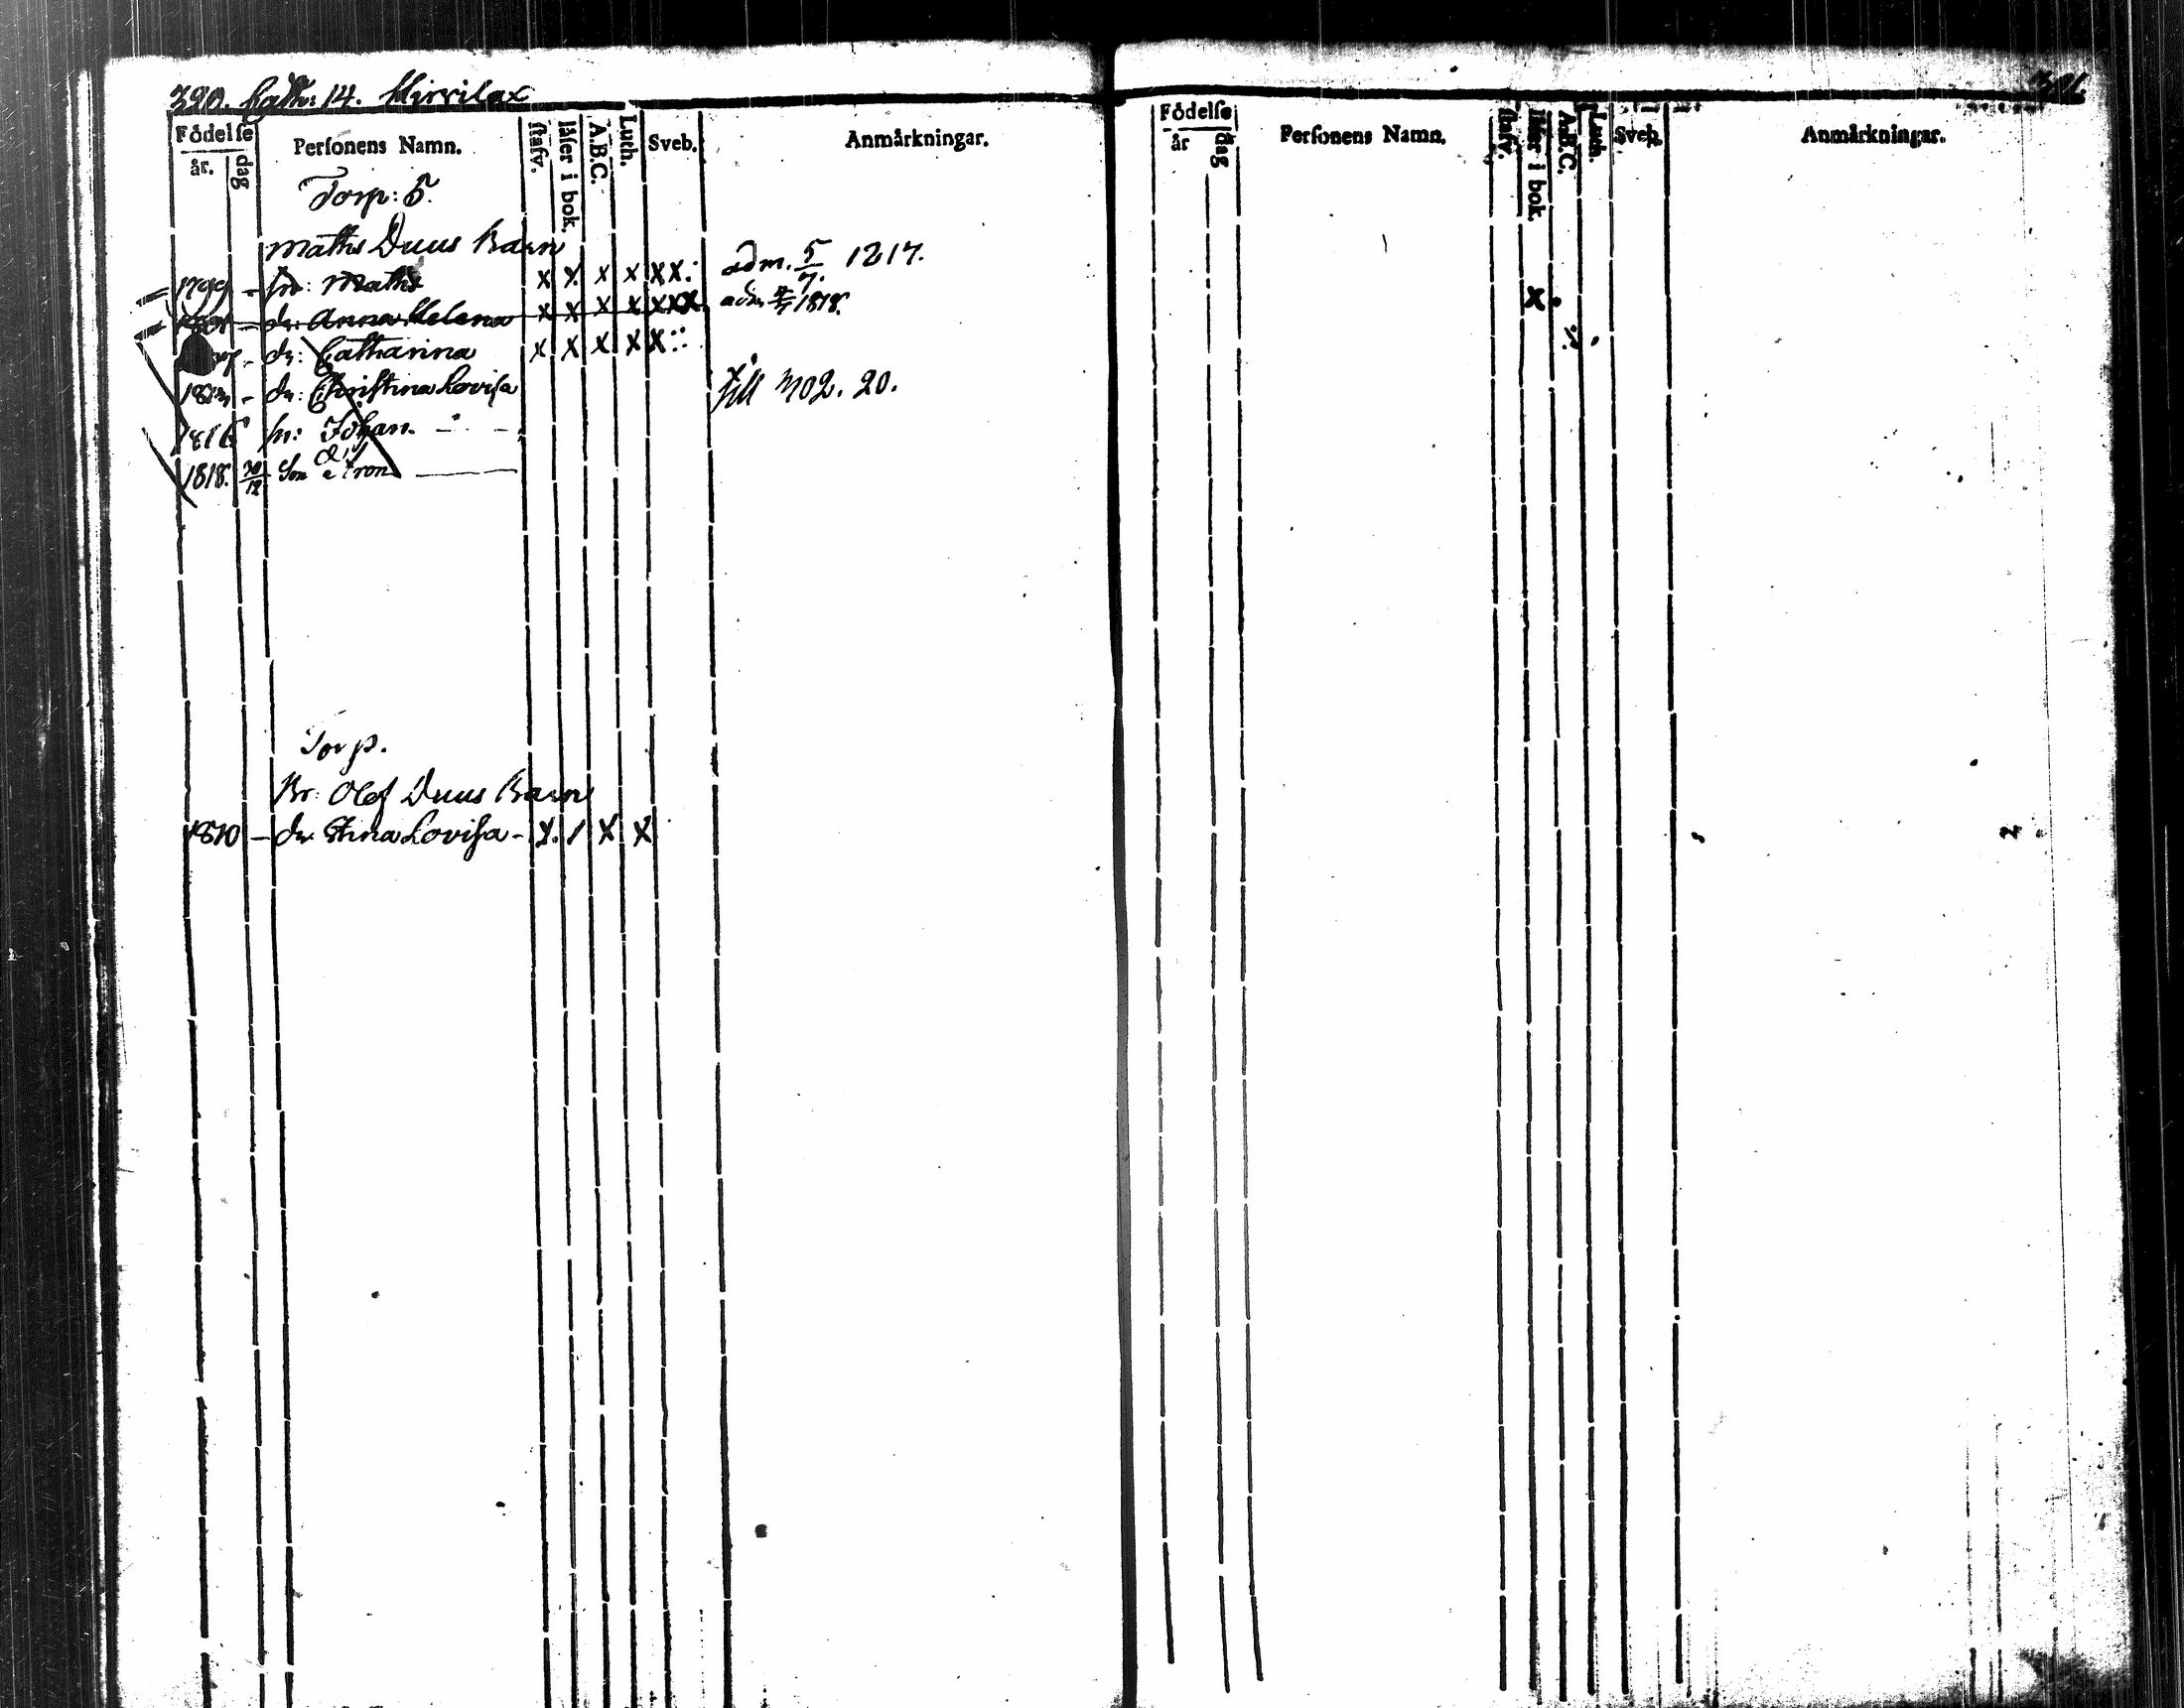 390. Cath: 14. Kirrilax
Födelſe
år. dag
Perſonens Namn.
ſtafv.
läſer i bok.
A.B.C.
Luth.
Sveb.
Anmärkningar.
Torp: 5.
Matts Duus Barn
1799 - Sn: Matts x x x x xx: adm. 5/7. 1217.
dr: Anna Helena x x x x xxx adm 1818.
dr: Catharina x x x x x::
dr: Chriſtina Loviſa till 702. 20.
1816 Sn: Johan
1818. 30/12 Son
Torp.
Br: Olof Duus Barn
1810 - dr Stina Loviſa - x. / x x
Födelſe
år dag
Perſonens Namn.
ſtafv.
läſer i bok.
A.B.C.
Luth.
Sveb.
Anmärkningar.
x